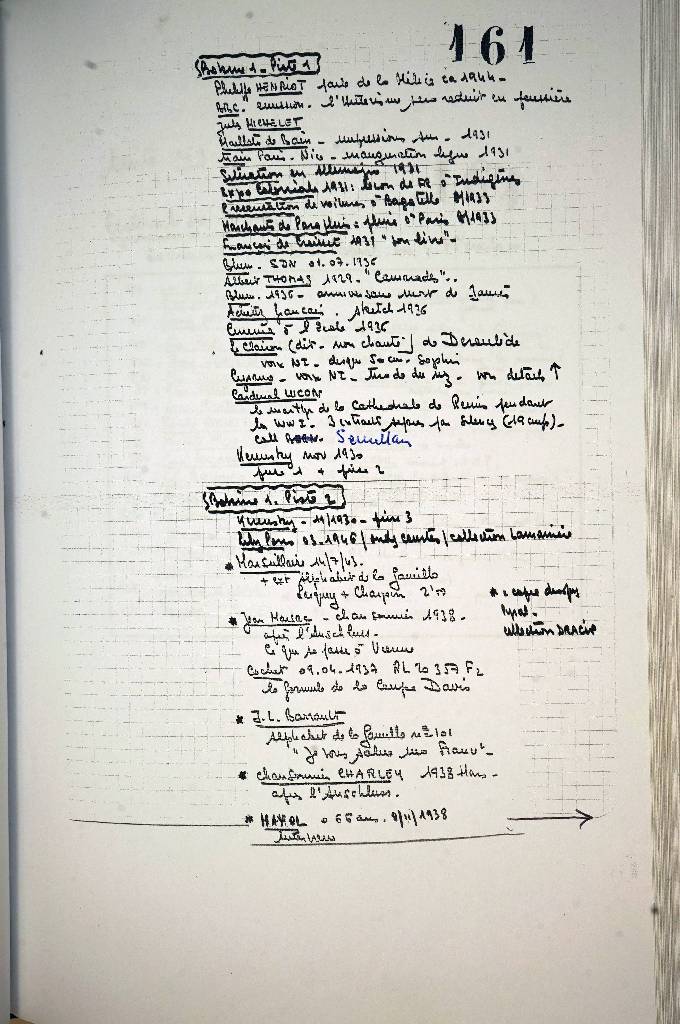 161
Bobine 1 - Piste 1
Philippe HENRIOT parle de la Milice ca 1944 -
BBC. émission. l'hitlérisme sera réduit en poussière
Jules MICHELET
Maillots de Bain - impressions sur - 1931
Train Paris. Nice - inauguration ligne 1931
Situation en Allemagne 1931
Expo Coloniale 1931: leçon de FR à Indigènes
Présentation de voitures à Bagatelle 8/1933
Marchands de Parapluie: pluie à Paris 8/1933
François de Croisset 1931 "son livre" -
Blum. SDN 01.07.1936
Albert THOMAS 1929. "Camarades".
Blum. 1936 - anniversaire mort de Jaurès
Acteurs français. sketch 1936
Cinéma à l'école 1936
Le Clairon (dit - non chanté) de Deroulède
voix NI - disque
Cyrano - voix NI - tirade du nez - voir détails ↑
Cardinal LUCON
le martyre de la cathédrale de Reims pendant
la WW I. 3 extraits séparés par silences (19 cmps) -
call
Kerensky nov 1930
face 1 + face 2
Bobine 1. Piste 2
Kerensky - 11/1930 - face 3
Lily Pons 03-1946 / ondes courtes / collection Lamainière
* Marseillaise 14/7/43.
+ ext Alphabet de la famille
+ Charpin 2'
* = copie disques
Pyral -
collection
* Jean Marsac - chansonnier 1938 -
après l'Anschluss -
Ce qui se passe à Vienne
Cochet 09.04.1937 RL 20 357 F2
la formule de la Coupe Davis
* J.L. Barrault
Alphabet de la famille n° 101
"Je vous salue ma France" -
* chansonnier CHARLEY 1938 Mars -
après l'Anschluss.
* MAYOL à 66 ans. 8/11/1938
Interview